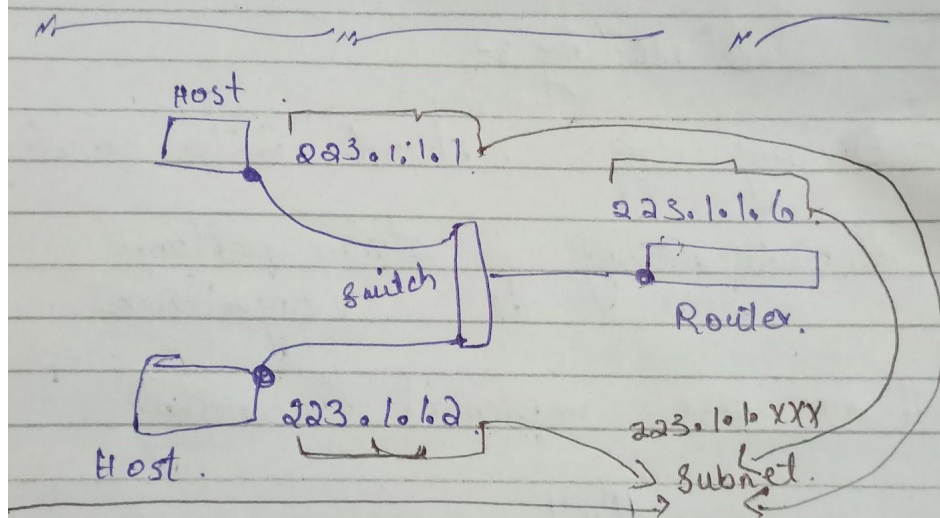 Host
223.1.1.1
223.1.1.6
Switch
Router.
223.1.1.2
223.1.1.XXX
Host.
Subnet.